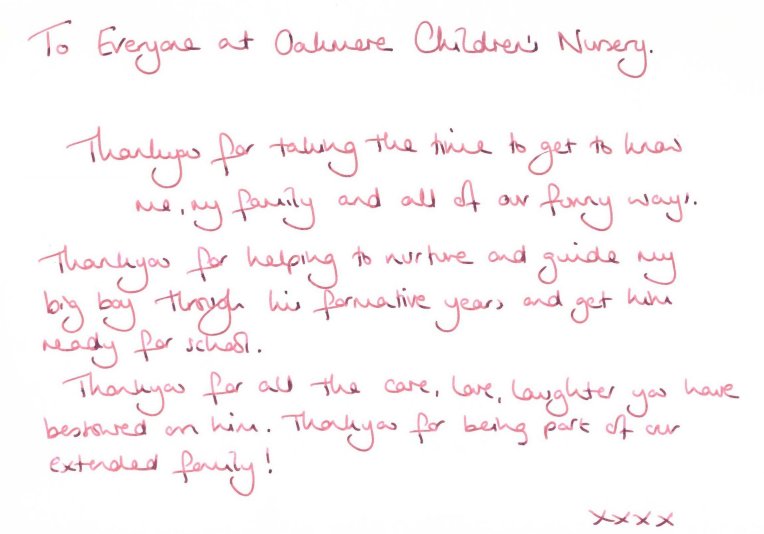 To Everyone at Oakmere Children's Nursery.
Thankyou for taking the time to get to know
me, my family and all of our funny ways.
Thankyou for helping to nurture and guide my
big boy through his formative years and get him
ready for school.
Thankyou for all the care, love, laughter you have
bestowed on him. Thankyou for being part of our
extended family!
xxxx